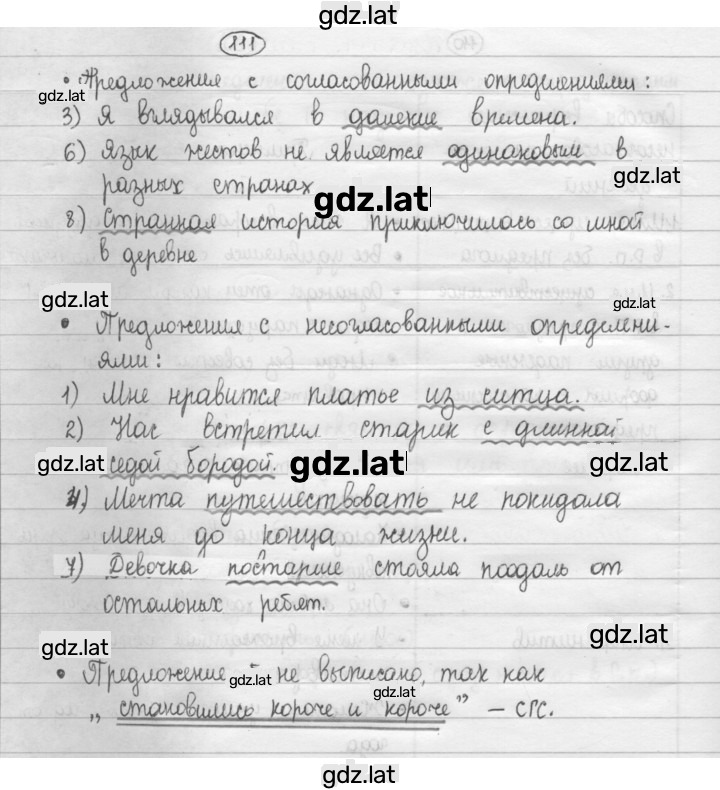 gdz.lat
111
• Предложения с согласованными определениями:
gdz.lat
3) Я вглядывался в далекие времена.
6) Язык жестов не является одинаковым в
разных странах
gdz.lat
gdz.lat
8) Странная история приключилась со мной
в деревне
gdz.lat
gdz.lat
• Предложения с несогласованными определени-
ями:
1) Мне нравится платье из ситца.
2) Нас встретил старик с длинной
gdz.lat седой бородой. gdz.lat gdz.lat
4) Мечта путешествовать не покидала
меня до конца жизни.
7) Девочка постарше стояла поодаль от
остальных ребят.
gdz.lat
gdz.lat
• Предложение - не выписано, так как
gdz.lat
gdz.lat
„становились короче и короче" – СГС.
gdz.lat